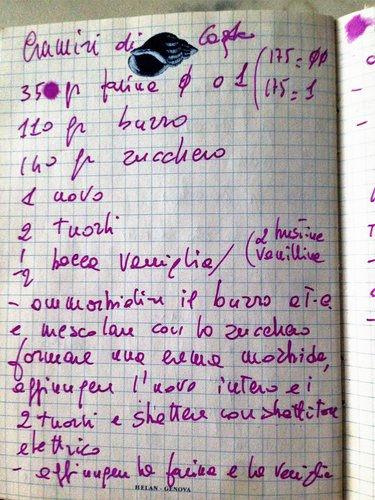 di
350 gr farina 0 o 1 (175 = 00
175 = 1
110 gr burro
140 gr zucchero
1 uovo
2 tuorli
1/2 bacca vaniglia / (2 bustine
vanilline
- ammorbidire il burro a T.a
e mescolare con lo zucchero
formare una crema morbida,
aggiungere l'uovo intero e i
2 tuorli e sbattere con sbattitore
elettrico
- aggiungere la farina e la vaniglia
HELAN - GENOVA